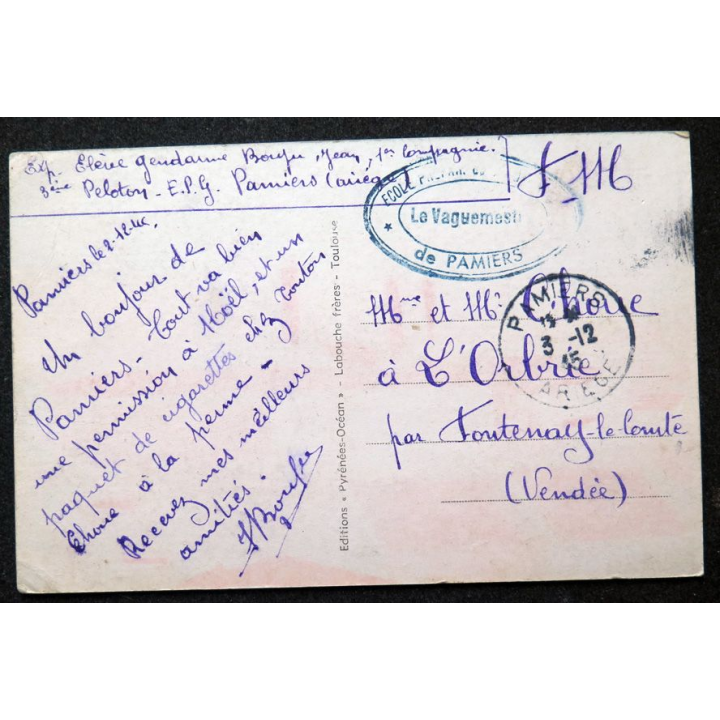 Exp. Elève gendarme Boupu, Jean, 1re Compagnie.
3ème Peloton - E.P.G. Pamiers (ariège)
F.M
ECOLE PREPAR.
Le Vaguemest
de PAMIERS
Pamiers le 2.12.
Un bonjour de
Pamiers - Tout va bien
une permission à Noël, et un
paquet de cigarettes chez tonton
Thoue à la penne -
Recevez mes meilleurs
amitiés.
Editions « Pyrénées-Océan » - Labouche frères - Toulouse
PAMIERS
3 -12
45
ARIEGE
Mme et Mr Thoue
à L'Orbrie
par Fontenay-le-Comte
(Vendée)